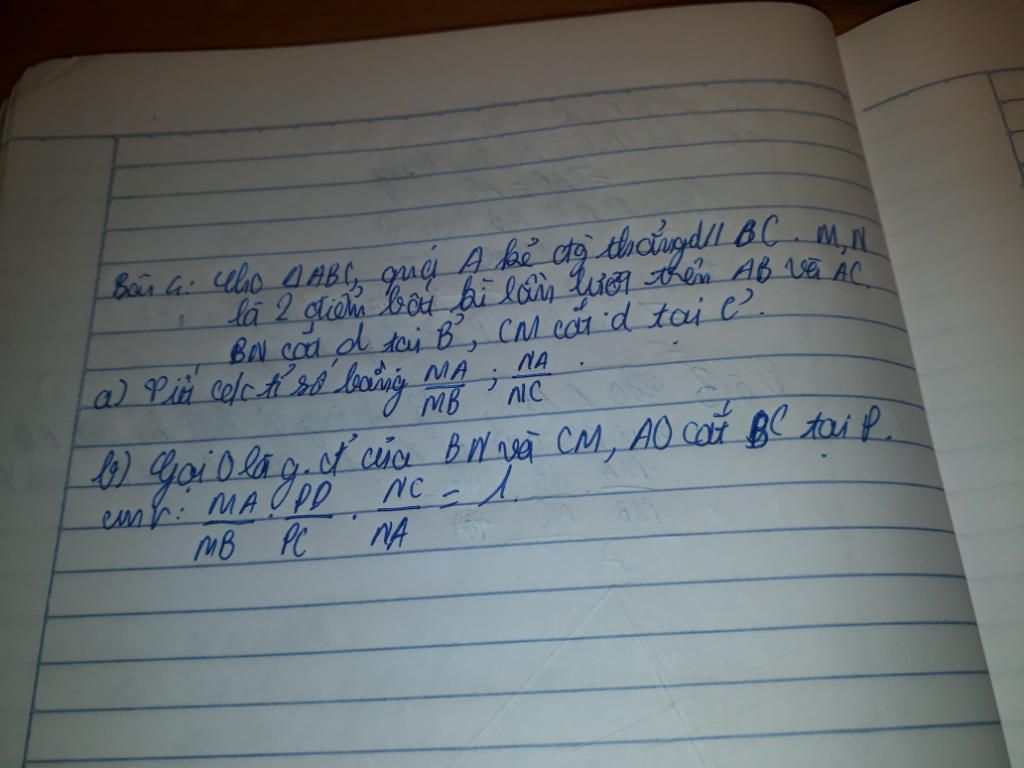 Bài 4: Cho ΔABC, qua A kẻ đg thẳng d // BC. M,N
là 2 điểm bất kì lần lượt trên AB và AC.
BN cắt d tại B', CM cắt d tại C'.
a) Tìm các tỉ số bằng MA/MB ; NA/NC.
b) Gọi O là g.đ của BN và CM, AO cắt BC tại P.
cmr: MA/MB . PD/PC . NC/NA = 1.